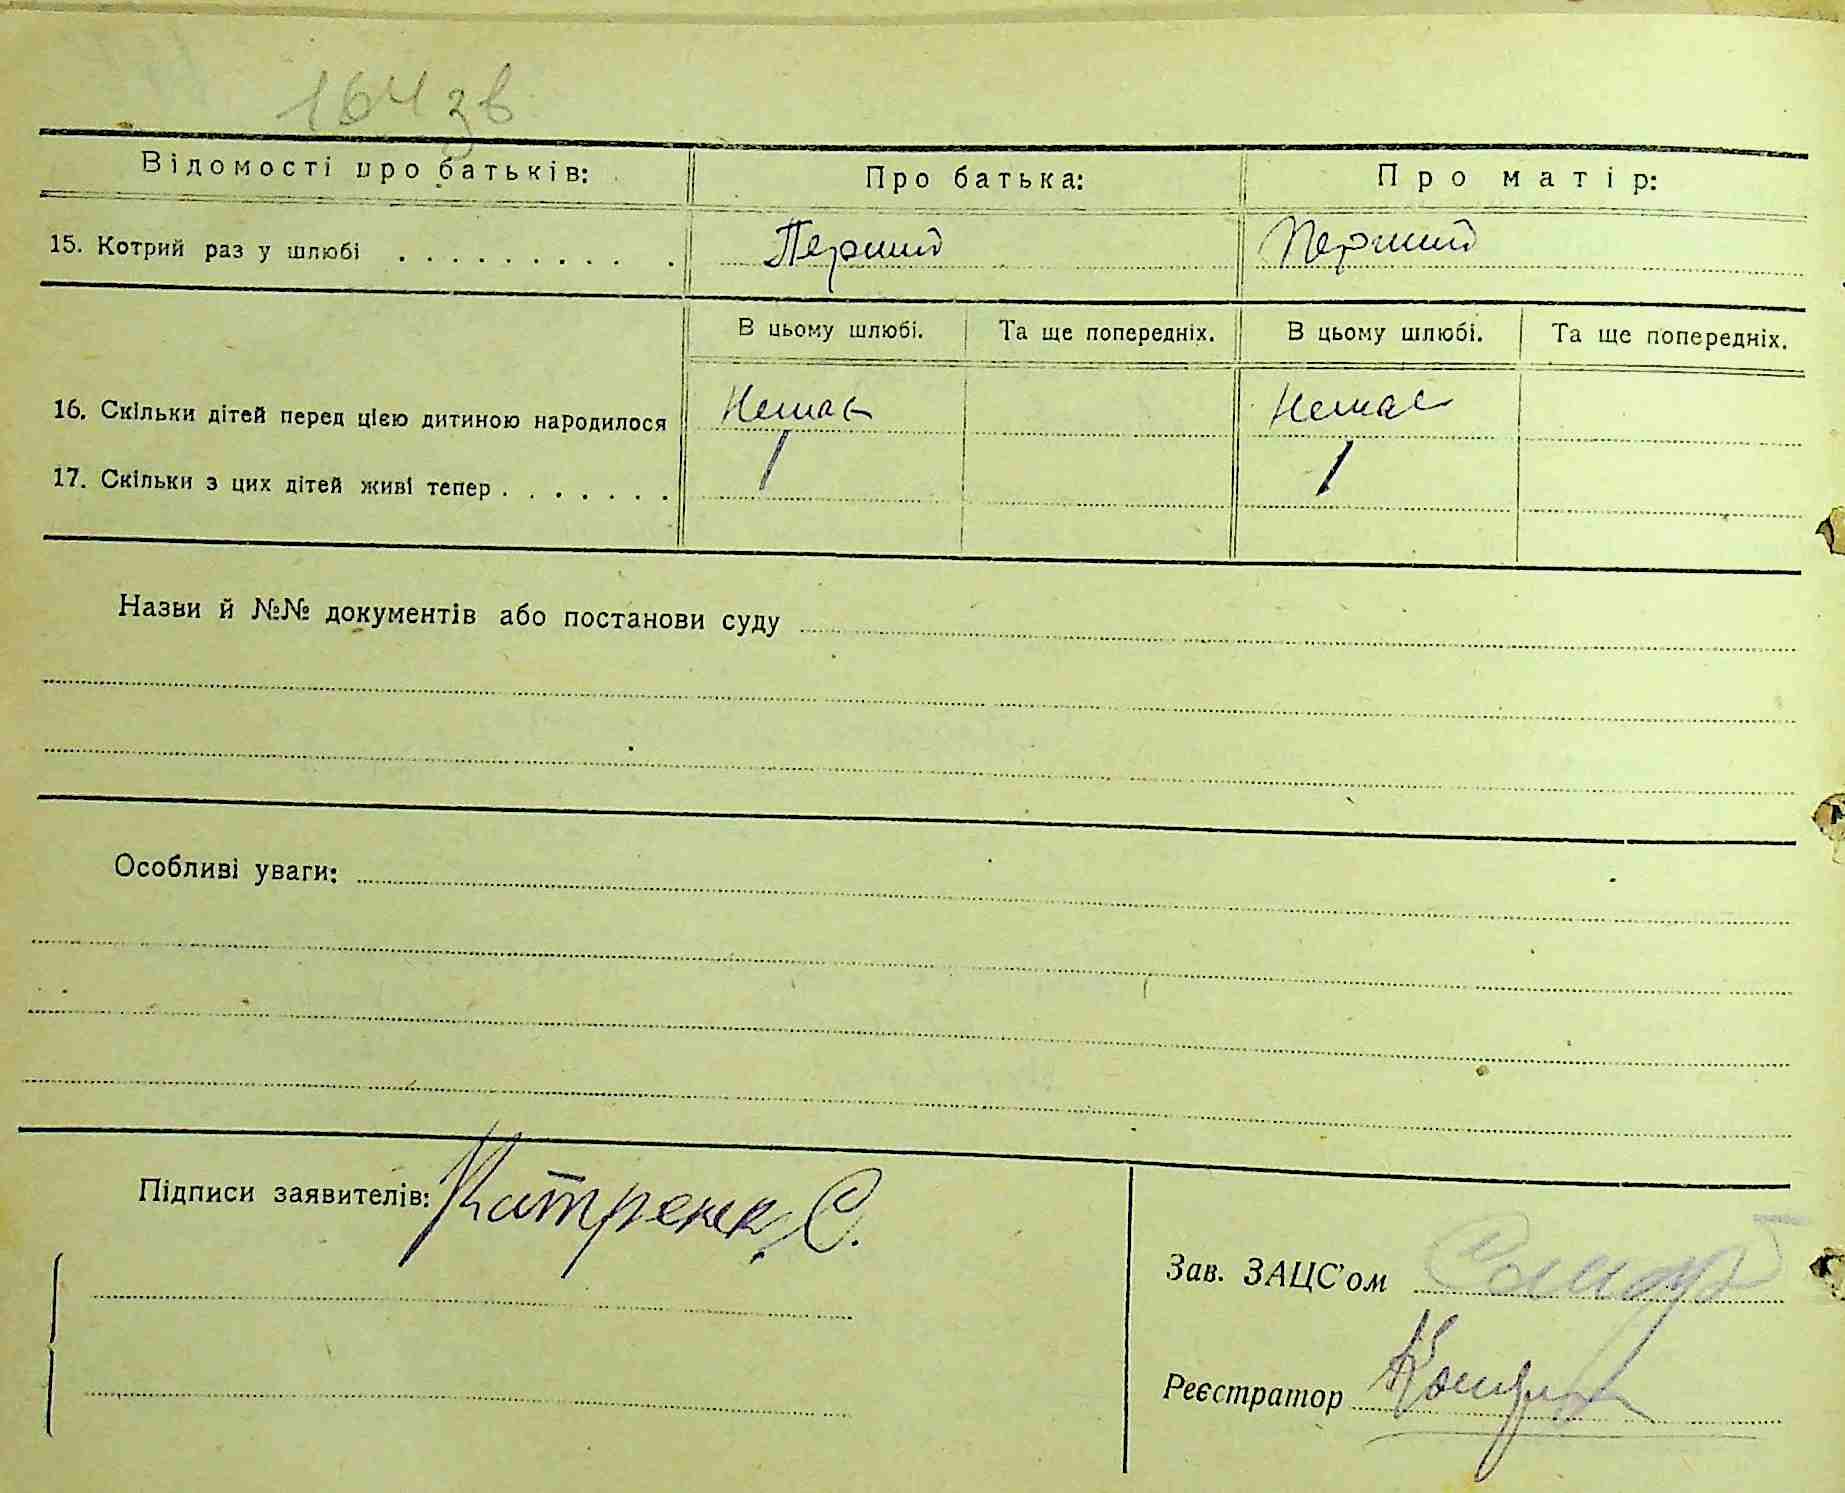 164 зв
Відомості про батьків: Про батька: Про матір:
15. Котрий раз у шлюбі . . . . . . . . . . Перший Перший
В цьому шлюбі. Та ще попередніх. В цьому шлюбі. Та ще попередніх.
16. Скільки дітей перед цією дитиною народилося Немає Немає
17. Скільки з цих дітей живі тепер . . . . . . . / /
Назви й №№ документів або постанови суду
Особливі уваги:
Підписи заявителів: С.
Зав. ЗАЦС’ом
Реєстратор